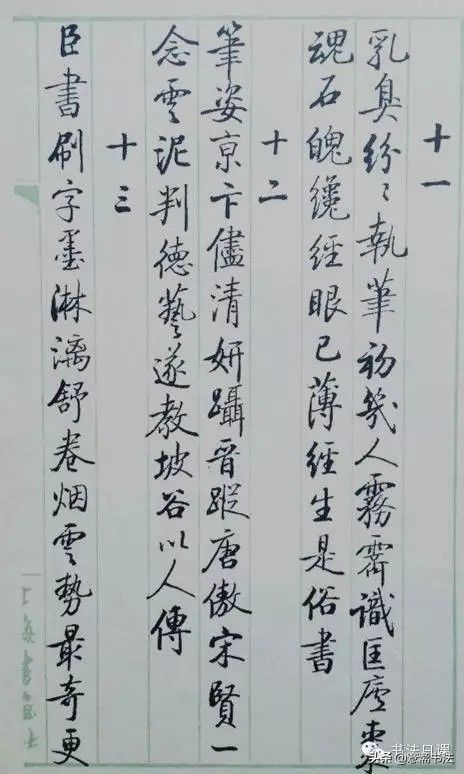 十一
乳臭紛〻執筆初幾人霧霽識匡廬棗
魂石魄纔經眼已薄經生是俗書
十二
筆姿京卞儘清妍躡晉蹤唐傲宋賢一
念雲泥判德藝遂教坡谷以人傳
十三
臣書刷字墨淋漓舒卷烟雲勢最奇更
书法日课